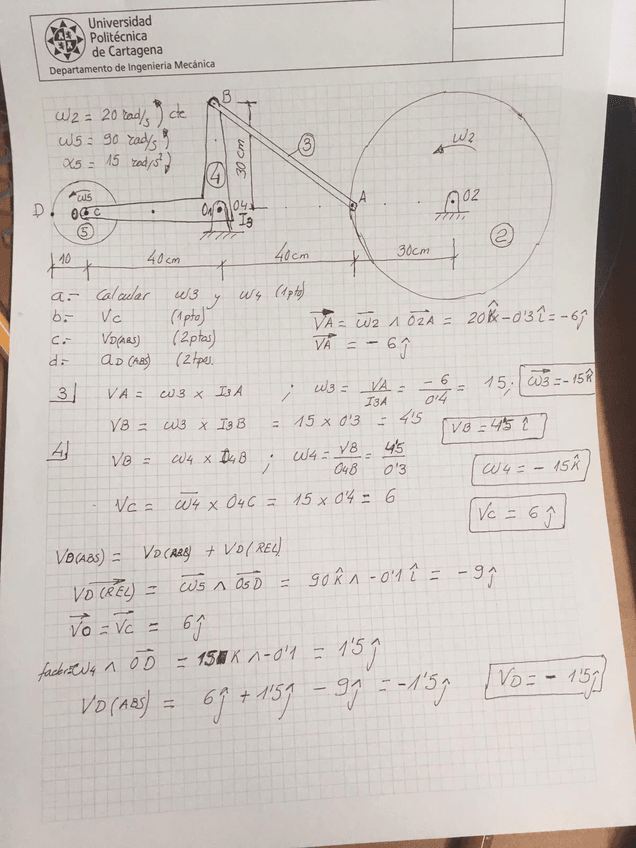 Universidad
Politécnica
de Cartagena
Departamento de Ingeniería Mecánica
ω2 = 20 rad/s cte
ω5 = 90 rad/s
α5 = 15 rad/s²
B
30 cm
3
4
ω2
ω5
D
C
5
O1
O4
I3
A
O2
2
10
40cm
40cm
30cm
a.- Calcular ω3 y ω4 (1pto)
b.- Vc (1pto)
c.- VD(ABS) (2ptos)
d.- aD(ABS)
VA = ω2 ∧ O2A = 20k̂ - 0'3î = -6ĵ
VA = - 6ĵ
3 VA = ω3 x I3A ; ω3 = VA/I3A = -6/0'4 = 15; ω3 = -15k̂
VB = ω3 x I3B = 15 x 0'3 = 4'5 VB = 4'5 î
4 VB = ω4 x I4B ; ω4 = VB/O4B = 4'5/0'3 ω4 = - 15k̂
Vc = ω4 x O4C = 15 x 0'4 = 6 Vc = 6ĵ
VD(ABS) = VD(ARR) + VD(REL)
VD(REL) = ω5 ∧ O5D = 90k̂ ∧ -0'1 î = -9ĵ
VO = VC = 6ĵ
ω4 ∧ OD = 15 K ∧ -0'1 = 1'5ĵ
VD(ABS) = 6ĵ + 1'5ĵ - 9ĵ = -1'5ĵ VD = - 1'5ĵ